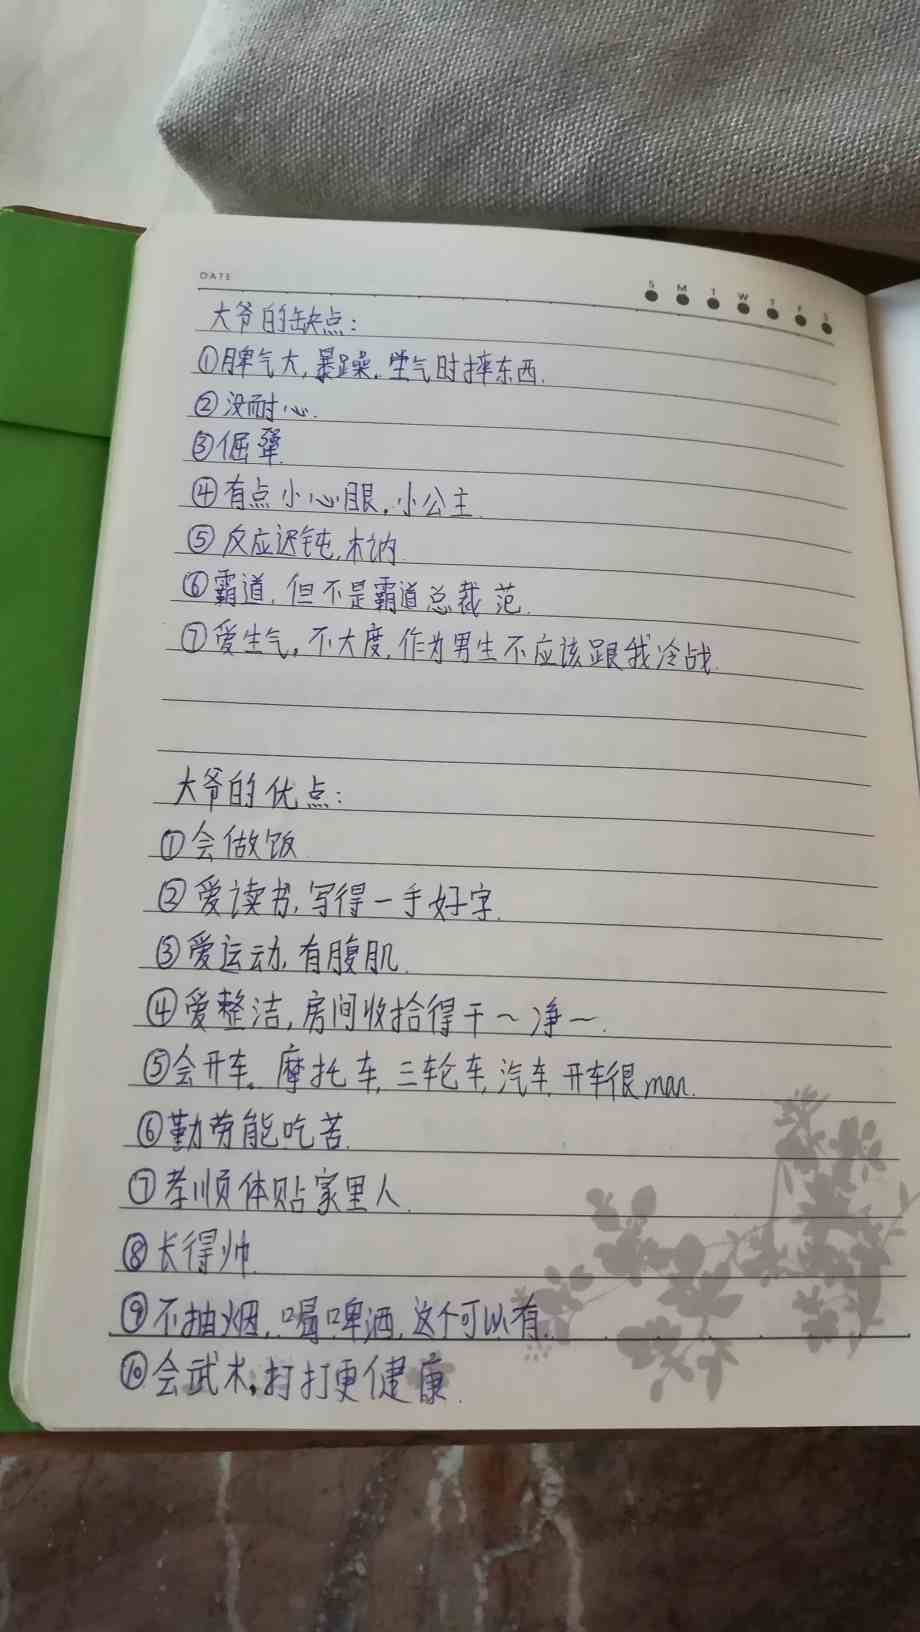 DATE
S M T W T F S
大爷的缺点：
①脾气大,暴躁,生气时摔东西.
②没耐心.
③倔犟
④有点小心眼,小公主.
⑤反应迟钝,木讷.
⑥霸道,但不是霸道总裁范.
⑦爱生气,不大度,作为男生不应该跟我冷战.
大爷的优点：
①会做饭
②爱读书,写得一手好字.
③爱运动,有腹肌.
④爱整洁,房间收拾得干~净~.
⑤会开车。摩托车,三轮车,汽车,开车很man.
⑥勤劳能吃苦.
⑦孝顺体贴家里人.
⑧长得帅.
⑨不抽烟,喝啤酒,这个可以有.
⑩会武术,打打更健康.